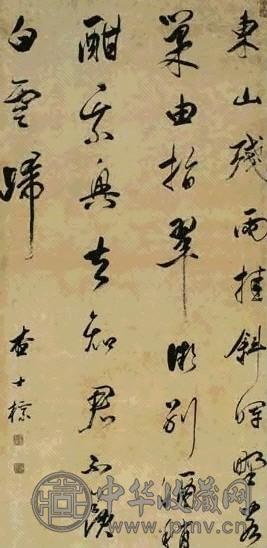 東山殘雨挂斜暉野客
巢由指翠微別酒稍
酣乘興去知君不羨
白雲歸
查士標
中华收藏网